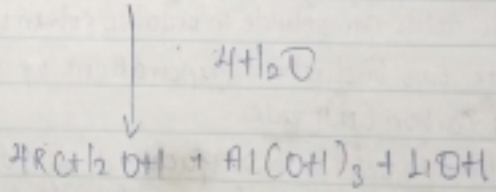 4H₂O
4RCH₂OH + Al(OH)₃ + LiOH